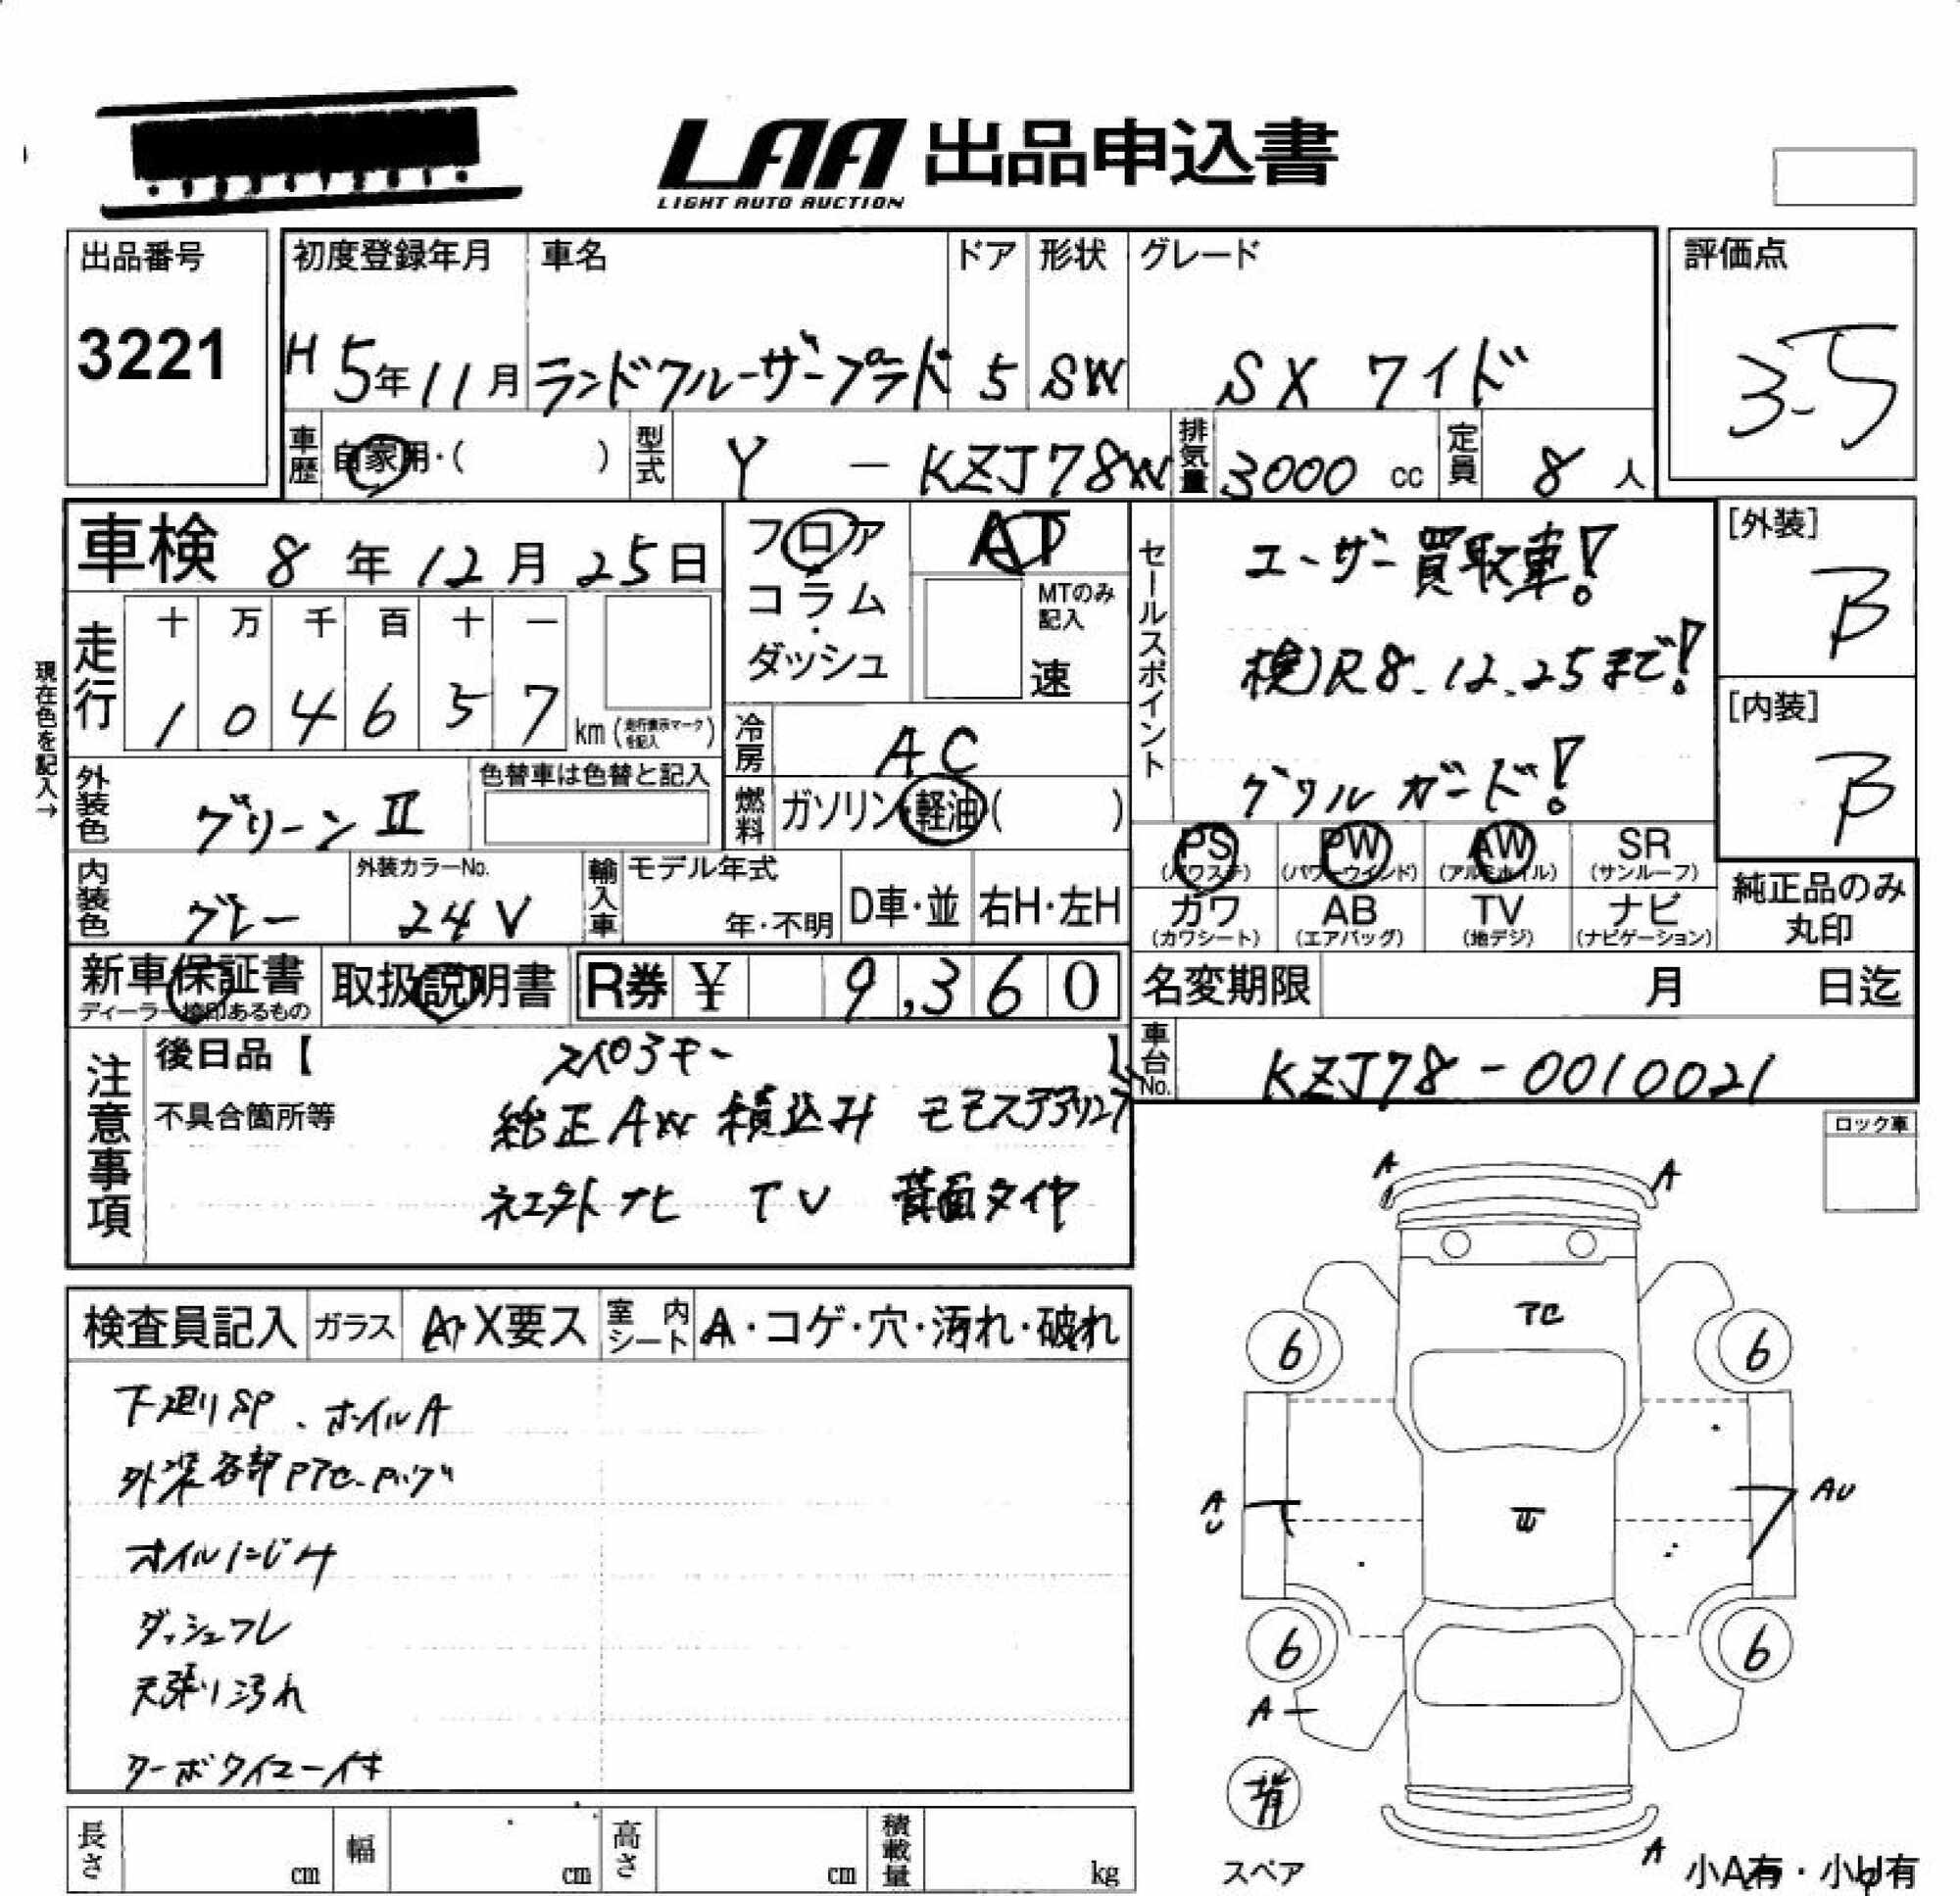 LAA 出品申込書
LIGHT AUTO AUCTION
出品番号
3221
初度登録年月 車名 ドア 形状 グレード
H5年11月 ランドクルーザープラド 5 SW SX ワイド
評価点
3.5
車歴 自家用・( ) 型式 Y - KZJ78W 排気量 3000 cc 定員 8 人
車検 8年12月25日
フロア
コラム・
ダッシュ
AT
MTのみ記入
速
現在色を記入→
走行
十 万 千 百 十 一
1 0 4 6 5 7 km (走行表示マークを記入)
冷房 AC
外装色 グリーンⅡ
色替車は色替と記入
燃料 ガソリン・軽油( )
内装色 グレー
外装カラーNo.
24V
輸入車 モデル年式
年・不明 D車・並 右H・左H
セールスポイント
ユーザー買取車!
検)R8.12.25まで!
グリルガード!
[外装]
B
[内装]
B
PS (パワステ) PW (パワーウインド) AW (アルミホイル) SR (サンルーフ)
カワ (カワシート) AB (エアバッグ) TV (地デジ) ナビ (ナビゲーション)
純正品のみ
丸印
新車保証書
ディーラー捺印あるもの
取扱説明書
R券 ¥ 9,360
名変期限 月 日迄
車台No. KZJ78-0010021
注意事項
後日品【 スペアキー 】
不具合箇所等
純正AW積込み モモステアリング
ナビ TV 背面タイヤ
ロック車
検査員記入 ガラス A・X要ス 室内シート A・コゲ・穴・汚れ・破れ
下廻りSP、ホイルA
外装各部PアセP
オイルにじみ
ダッシュワレ
天張り汚れ
ターボタイマー付
A A
アセ
6 6
A
U
AU
6 6
A
背
スペア
A
小A有・小U有
長さ cm 幅 cm 高さ cm 積載量 kg